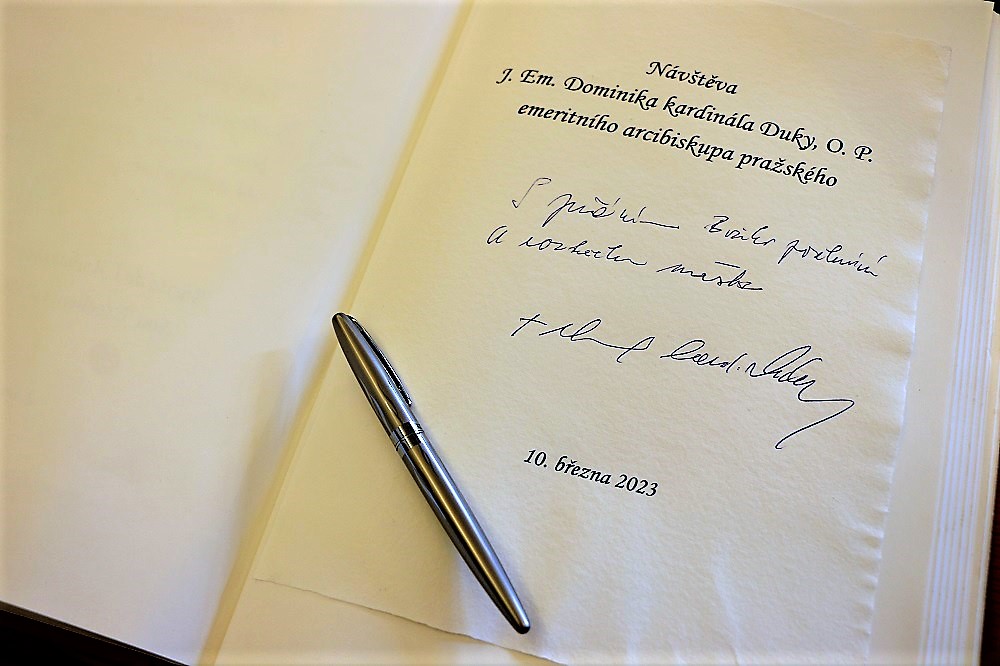 Návštěva
J. Em. Dominika kardinála Duky, O. P.
emeritního arcibiskupa pražského
S přáním Božího požehnání
a rozkvětu města
+ card. Duka
10. března 2023